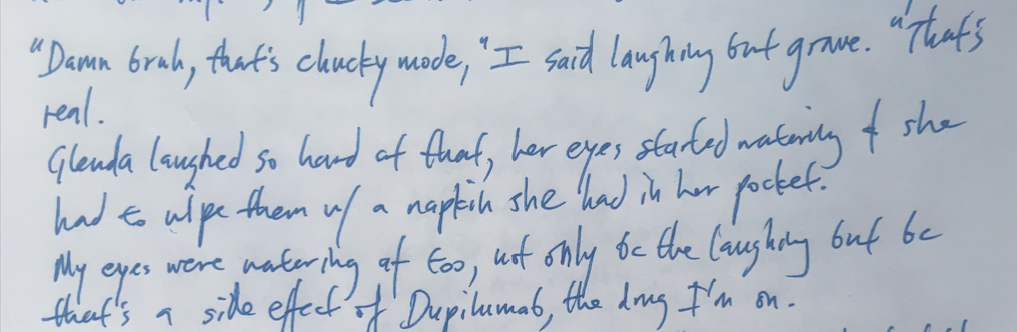 "Damn bruh, that's chucky mode," I said laughing but grave. "That's
real.
Glenda laughed so hard at that, her eyes started watering & she
had to wipe them w/ a napkin she had in her pocket.
My eyes were watering at too, not only bc the laughing but bc
that's a side effect of Dupilumab, the drug I'm on.